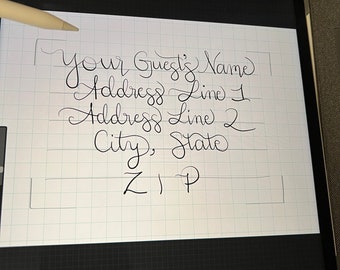 Your Guest's Name
Address Line 1
Address Line 2
City, State
Z I P